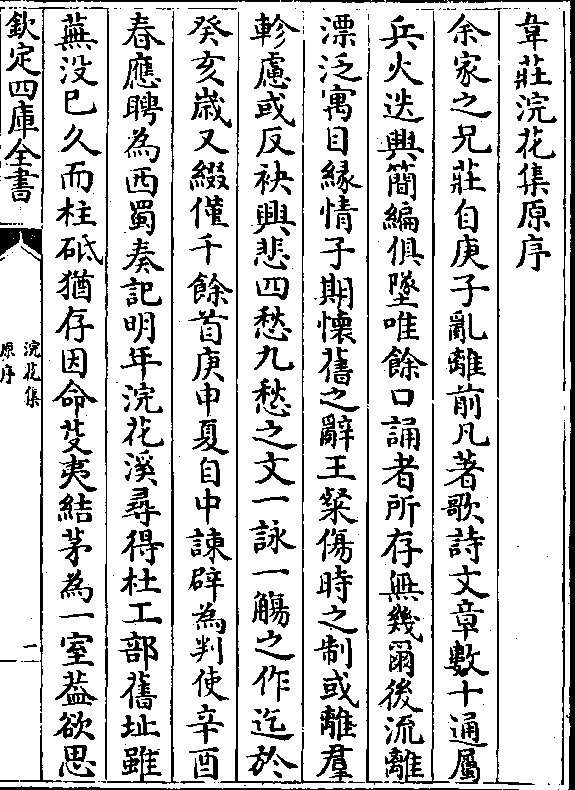 韋莊浣花集原序
余家之兄莊自庚子亂離前凡著歌詩文章數十通屬
兵火迭興簡編俱墜唯餘口誦者所存無幾爾後流離
漂泛寓目縁情子期懷舊之辭王粲傷時之制或離羣
軫慮或反袂興悲四愁九愁之文一詠一觴之作迄於
癸亥嵗又綴僅千餘首庚申夏自中諫辟為判使辛酉
春應聘為西蜀奏記明年浣花溪尋得杜工部舊址雖
蕪没已久而柱砥猶存因命芟夷結茅為一室葢欲思
欽定四庫全書
浣花集
原序
一